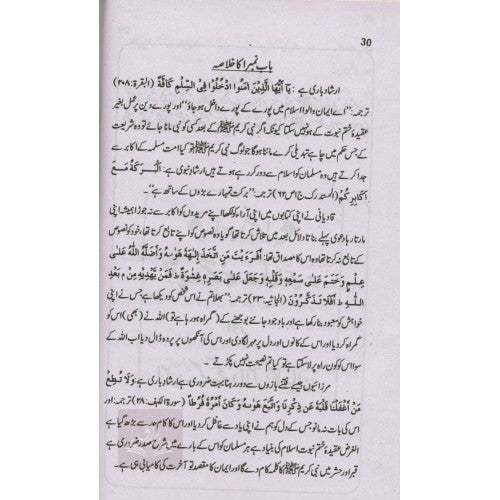 30
باب نمبر ا کا خلاصہ
ارشاد باری ہے : يَا اَيُّهَا الَّذِيْنَ اٰمَنُوا ادْخُلُوْا فِى السِّلْمِ كَآفَّةً (البقرۃ:۲۰۸)
ترجمہ: ’’اے ایمان والو! اسلام میں پورے کے پورے داخل ہو جاؤ‘‘ اور پورے دین پر عمل بغیر
عقیدۂ ختم نبوت کے ہو نہیں سکتا کیونکہ اگر نبی کریم ﷺ کے بعد کسی کو نبی مانا جائے تو وہ شریعت
کے جس حکم میں چاہے تبدیلی کرے ماننا ہوگا جو لوگ نبی کریم ﷺ سے تو کیا امت مسلمہ کے اکابر سے
جدا کرتے ہیں وہ مسلمان کو اسلام سے دور کر رہے ہوتے ہیں ارشاد نبوی ہے: اَلْبَرَكَةُ مَعَ
اَكَابِرِكُمْ (المستدرک ج۱ص۶۲) ترجمہ: ’’برکت تمہارے بڑوں کے ساتھ ہے‘‘۔
قادیانی نے اپنی کتابوں میں اپنی آراء کو لکھا اپنے مریدوں کو اکابر سے نہ جوڑا ہمیشہ اپنی
مارتا رہا دعوی پہلے بناتا دلائل بعد میں تلاش کرتا تھا گویا وہ نصوص کو اپنے تابع کرتا تھا خود کو نصوص
کے تابع نہ کرتا تھا وہ اس کا مصداق تھا: اَفَرَءَيْتَ مَنِ اتَّخَذَ اِلٰهَهٗ هَوٰىهُ وَاَضَلَّهُ اللّٰهُ عَلٰى
عِلْمٍ وَّخَتَمَ عَلٰى سَمْعِهٖ وَقَلْبِهٖ وَجَعَلَ عَلٰى بَصَرِهٖ غِشٰوَةً ط فَمَنْ يَّهْدِيْهِ مِنْ م بَعْدِ
اللّٰهِ ط اَفَلَا تَذَكَّرُوْنَ (الجاثیہ:۲۳) ترجمہ: ’’بھلا تم نے اس شخص کو دیکھا ہے جس نے اپنی
خواہش کو معبود بنا رکھا ہے اور باوجود جاننے بوجھنے کے (کہ گمراہ ہو رہا ہے تو) اللہ نے (بھی) اس کو
گمراہ کر دیا اور اس کے کانوں اور دل پر مہر لگا دی اور اس کی آنکھوں پر پردہ ڈال دیا اب اللہ کے
سوا اس کو کون راہ پر لا سکتا ہے تو کیا تم نصیحت نہیں پکڑتے
مرزائیوں جیسے فتنے بازوں سے دور رہنا بہت ضروری ہے ارشاد باری ہے: وَلَا تُطِعْ
مَنْ اَغْفَلْنَا قَلْبَهٗ عَنْ ذِكْرِنَا وَاتَّبَعَ هَوٰىهُ وَكَانَ اَمْرُهٗ فُرُطًا (سورۃ الکہف:۲۸) ترجمہ: اور
اس کی بات نہ مانو جس کے دل کو ہم نے اپنی یاد سے غافل کر دیا اور اس کا کام حد سے بڑھ گیا ہے
الغرض عقیدۂ ختم نبوت اسلام کی بنیاد ہے ہر مسلمان کو اس کے بارے میں شرح صدر ضروری ہے
قبر اور حشر میں نبی کریم ﷺ کا کلمہ کام دے گا اور ایمان کا مقصد تو آخرت کی کامیابی ہی ہے۔